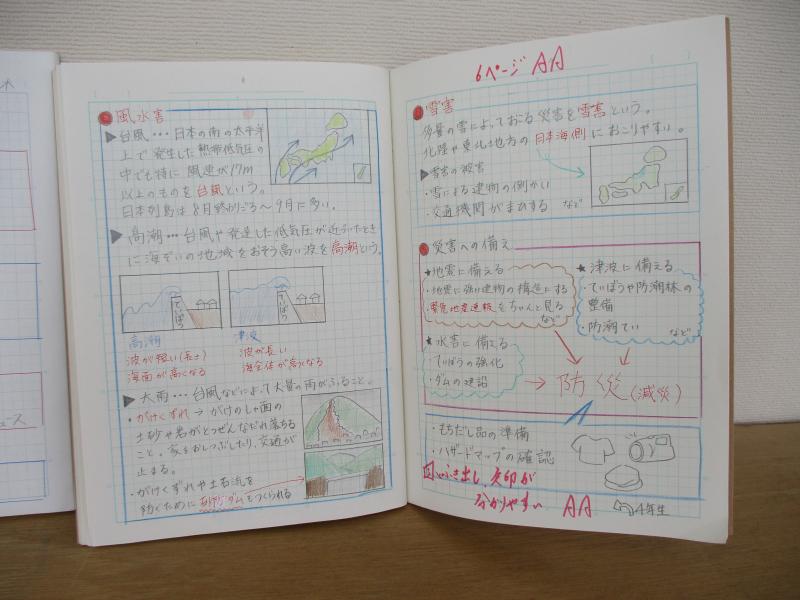 風水害
▶台風・・・日本の南の太平洋
上で発生した熱帯低気圧の
中でも特に風速が17m
以上のものを台風という。
日本列島は8月終わりごろ〜9月に多い。
▶高潮・・・台風や発達した低気圧が近づいたとき
に海ぞいの地域をおそう高い波を高潮という。
ていぼう
ていぼう
高潮
波が短い(長さ)
海面が高くなる
津波
波が長い
海全体が高くなる
▶大雨・・・台風などによって大量の雨がふること。
・がけくずれ→がけのしゃ面の
土砂や岩がとつぜんなだれ落ちる
こと。家をおしつぶしたり、交通が
止まる。
・がけくずれや土石流を
防ぐために砂防ダムもつくられる
6ページ AA
雪害
多量の雪によっておこる災害を雪害という。
北陸や東北地方の日本海側におこりやすい。
▶雪害の被害
・雪による建物の倒かい
・交通機関がまひする など
災害への備え
★地震に備える
・地震に強い建物の構造にする
・緊急地震速報をちゃんと見る
など
★津波に備える
・ていぼうや防潮林の
整備
・防潮てい など
★水害に備える
・ていぼうの強化
・ダムの建設
→防災(減災)
・もちだし品の準備
・ハザードマップの確認
図、ふき出し、矢印が
分かりやすい AA
4年生
ュース